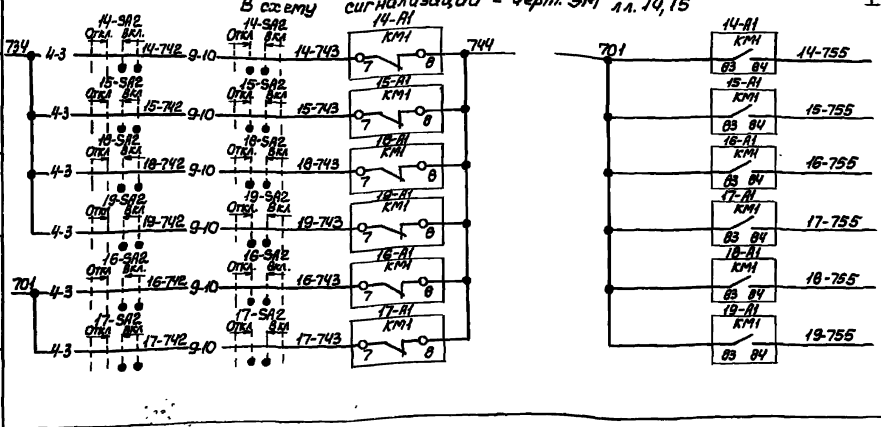 В схему сигнализации - черт. ЭМ лл. 14, 15
734
14-SA2
Откл. Вкл.
4-3 14-742 9-10
14-SA2
Откл. Вкл.
14-743
14-А1
КМ1
7 8
744
15-SA2
Откл. Вкл.
4-3 15-742 9-10
15-SA2
Откл. Вкл.
15-743
15-А1
КМ1
7 8
18-SA2
Откл. Вкл.
4-3 18-742 9-10
18-SA2
Откл. Вкл.
18-743
18-А1
КМ1
7 8
19-SA2
Откл. Вкл.
4-3 19-742 9-10
19-SA2
Откл. Вкл.
19-743
19-А1
КМ1
7 8
701
16-SA2
Откл Вкл.
4-3 16-742 9-10
16-SA2
Откл. Вкл.
16-743
16-А1
КМ1
7 8
17-SA2
Откл Вкл.
4-3 17-742 9-10
17-SA2
Откл. Вкл
17-743
17-А1
КМ1
7 8
701
14-А1
КМ1
83 84
14-755
15-А1
КМ1
83 84
15-755
16-А1
КМ1
83 84
16-755
17-А1
КМ1
83 84
17-755
18-А1
КМ1
83 84
18-755
19-А1
КМ1
83 84
19-755